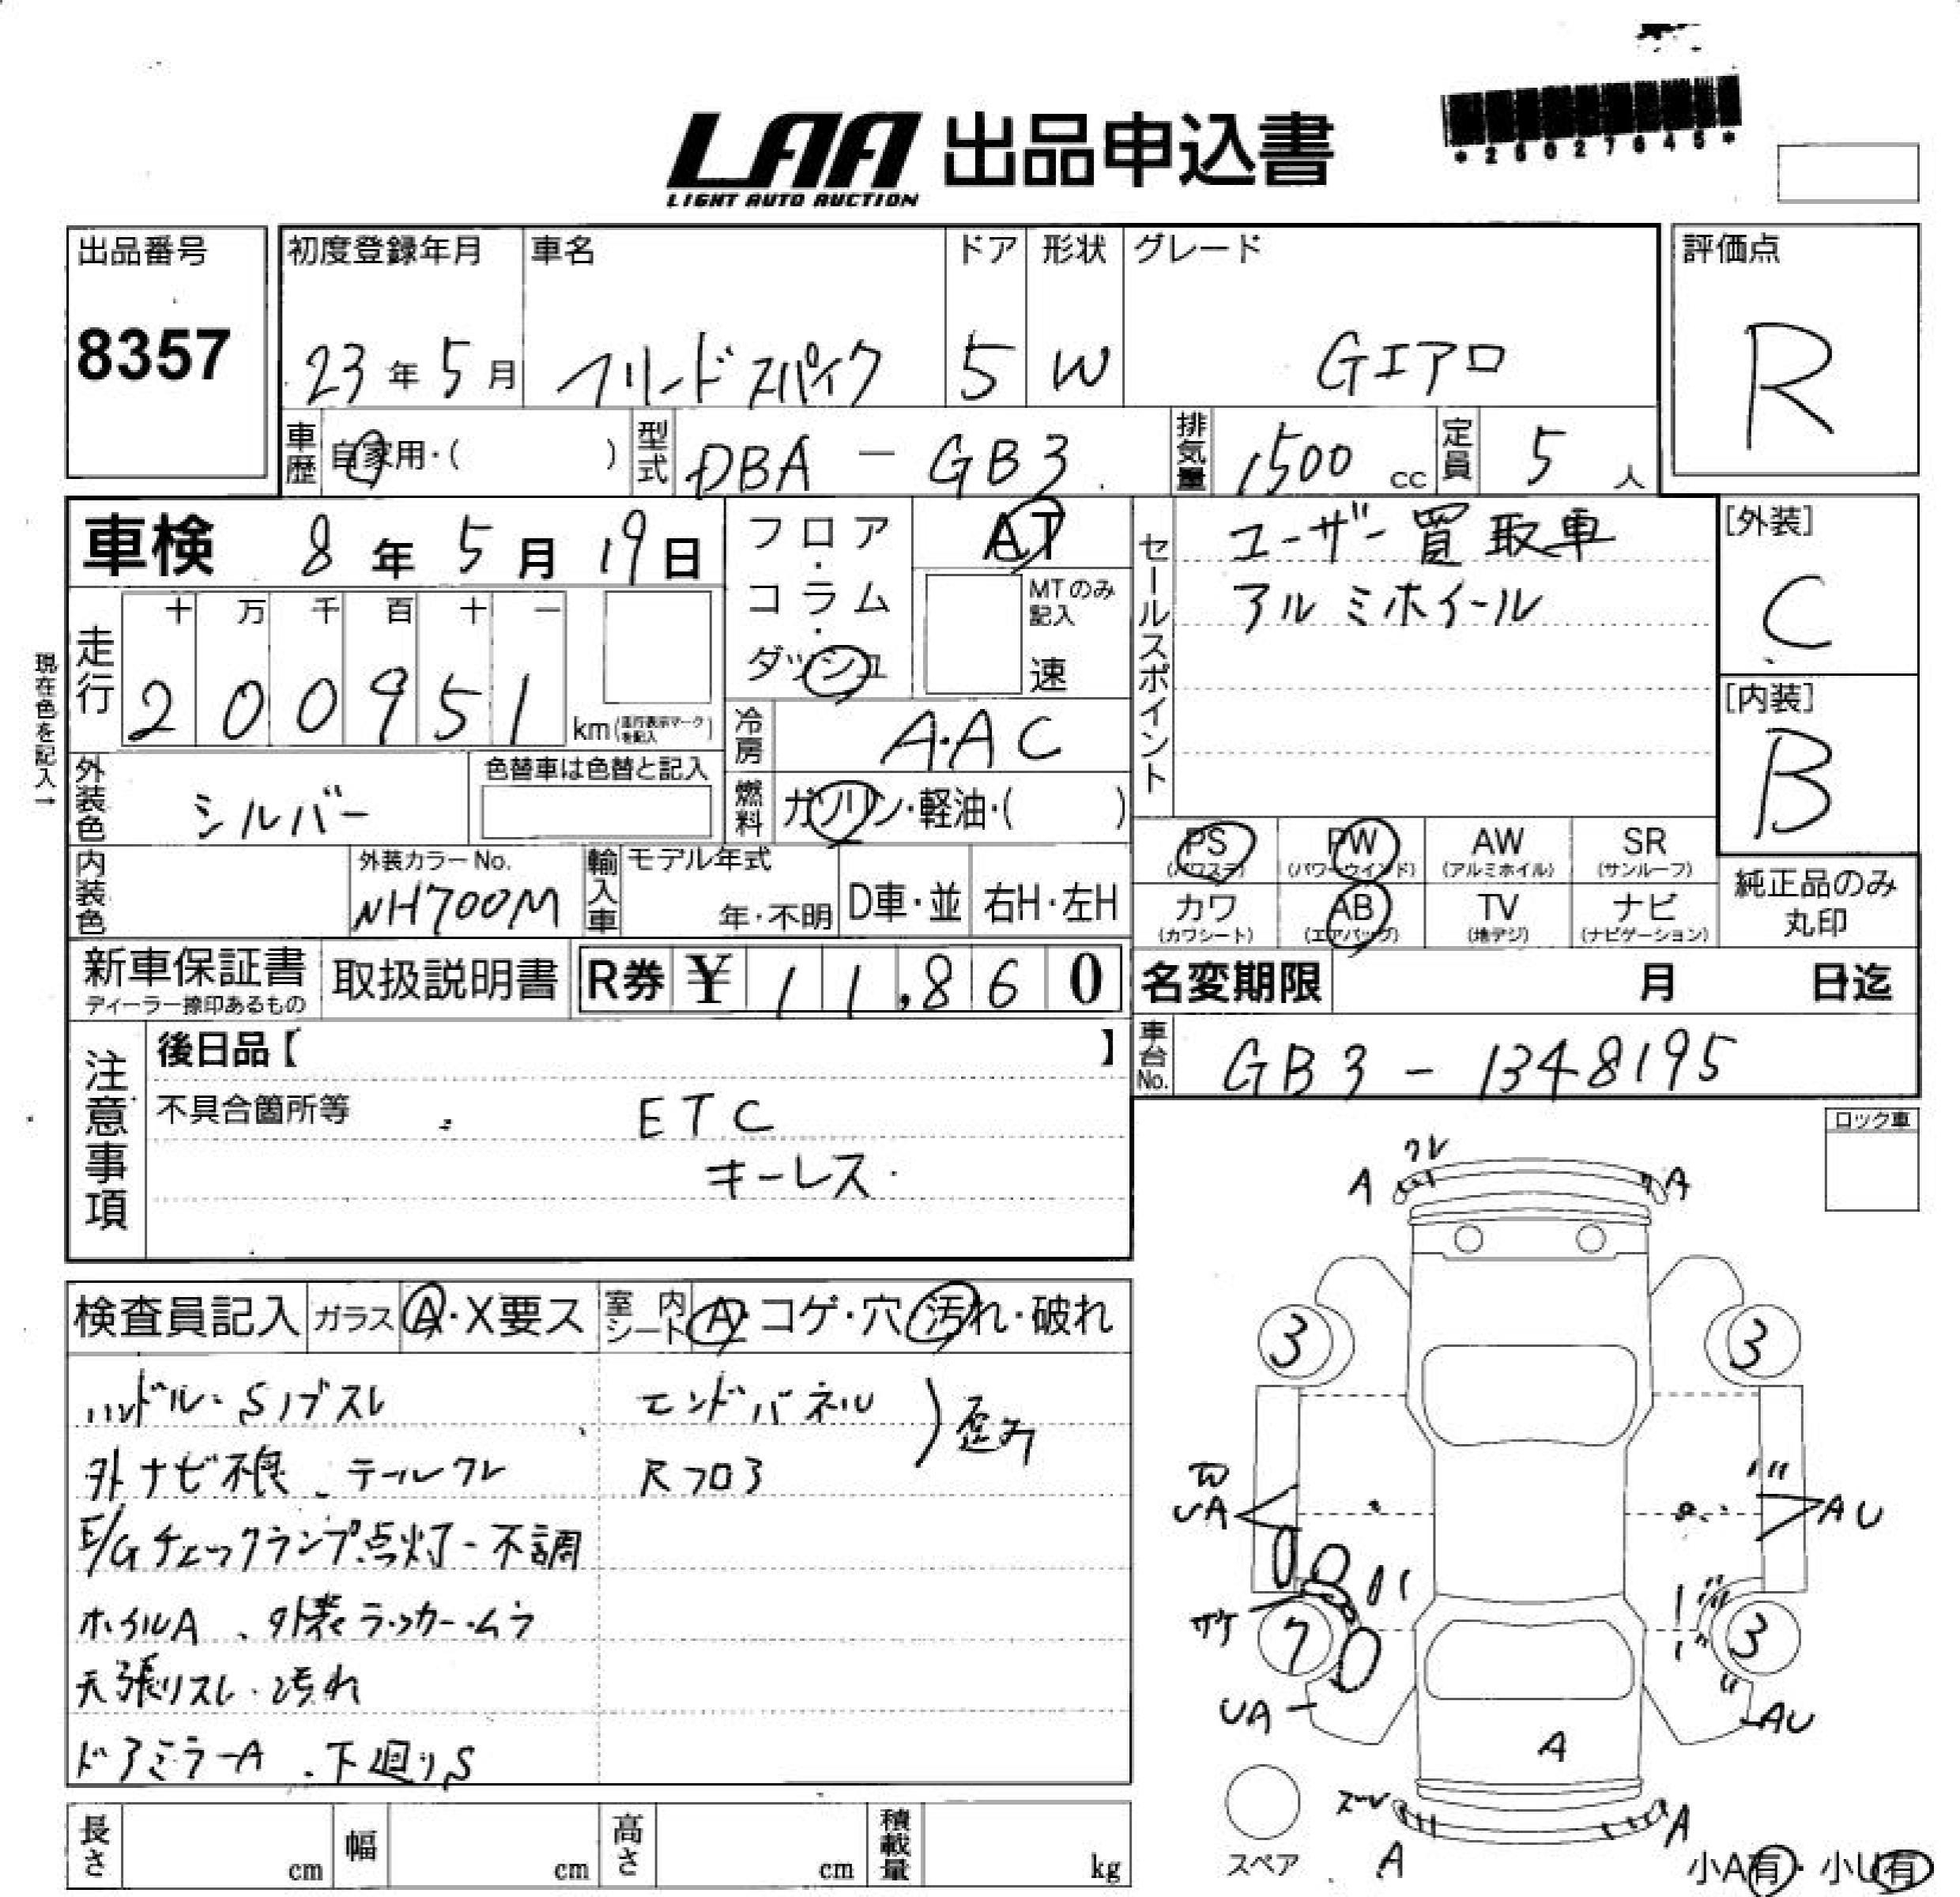 LAA 出品申込書
LIGHT AUTO AUCTION
*25027645*
出品番号
8357
初度登録年月
23年5月
車名
フリードスパイク
ドア
5
形状
W
グレード
Gエアロ
評価点
R
車歴
自家用・( )
型式
DBA - GB3
排気量
1500 cc
定員
5 人
車検 8年5月19日
走行
十 万 千 百 十 一
2 0 0 9 5 1
km(走行表示マークを記入)
現在色を記入→
フロア・コラム・ダッシュ
AT
MTのみ記入
速
冷房
A・AC
燃料
ガソリン・軽油・( )
セールスポイント
ユーザー買取車
アルミホイール
[外装]
C
[内装]
B
外装色
シルバー
色替車は色替と記入
内装色
外装カラーNo.
NH700M
輸入車
モデル年式
年・不明
D車・並
右H・左H
PS
(パワステ)
PW
(パワーウインド)
AW
(アルミホイル)
SR
(サンルーフ)
カワ
(カワシート)
AB
(エアバッグ)
TV
(地デジ)
ナビ
(ナビゲーション)
純正品のみ
丸印
新車保証書
ディーラー捺印あるもの
取扱説明書
R券 ¥ 11,860
名変期限 月 日迄
車台No.
GB3 - 1348195
注意事項
後日品【 】
不具合箇所等
ETC
キーレス
ロック車
検査員記入
ガラス
A・X要ス
室内シート
A・コゲ・穴・汚れ・破れ
ハンドル・Sノブスレ
外ナビ不良、テールワレ
E/Gチェックランプ点灯・不調
ホイルA、外装ラッカー・ムラ
天張リスレ・汚れ
ドアミラーA、下廻りS
エンドパネル
Rフロア
歪み
ワレ
A
A
3
3
UA
AU
サケ
7
3
UA
AU
A
ズレ
A
A
スペア
小A有・小U有
長さ
cm
幅
cm
高さ
cm
積載量
kg